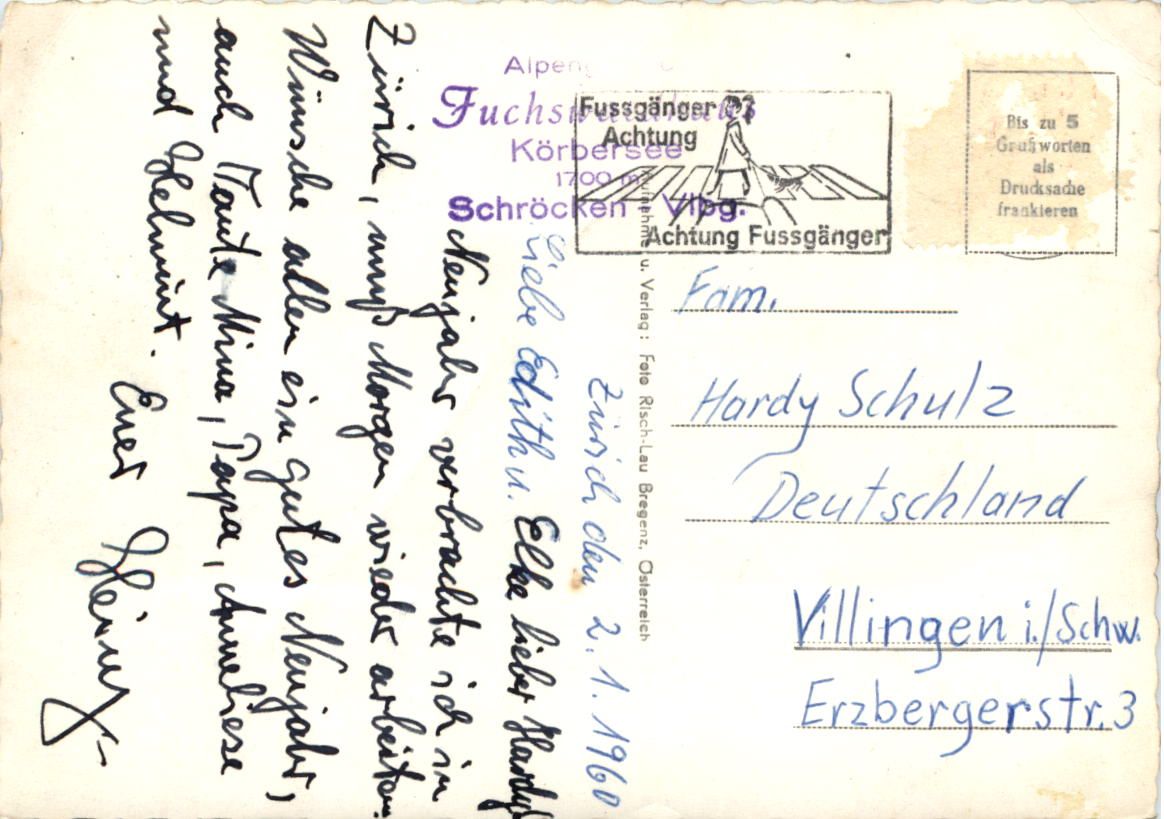 Zürich den 2. 1. 1960
Liebe Edith u. Elke lieber Hardy!
Neujahr verbrachte ich in
Zürich, muß Morgen wieder arbeiten.
Wünsche allen ein gutes Neujahr,
auch Tante Mina, Papa, Anneliese
und Helmut.
Euer Heinz
Körbersee
1700 m
Schröcken Vlbg.
Fussgänger
Achtung
Achtung Fussgänger
Bis zu 5
Grußworten
als
Drucksache
frankieren
u. Verlag: Foto Risch-Lau Bregenz, Österreich
Fam.
Hardy Schulz
Deutschland
Villingen i./Schw.
Erzbergerstr. 3